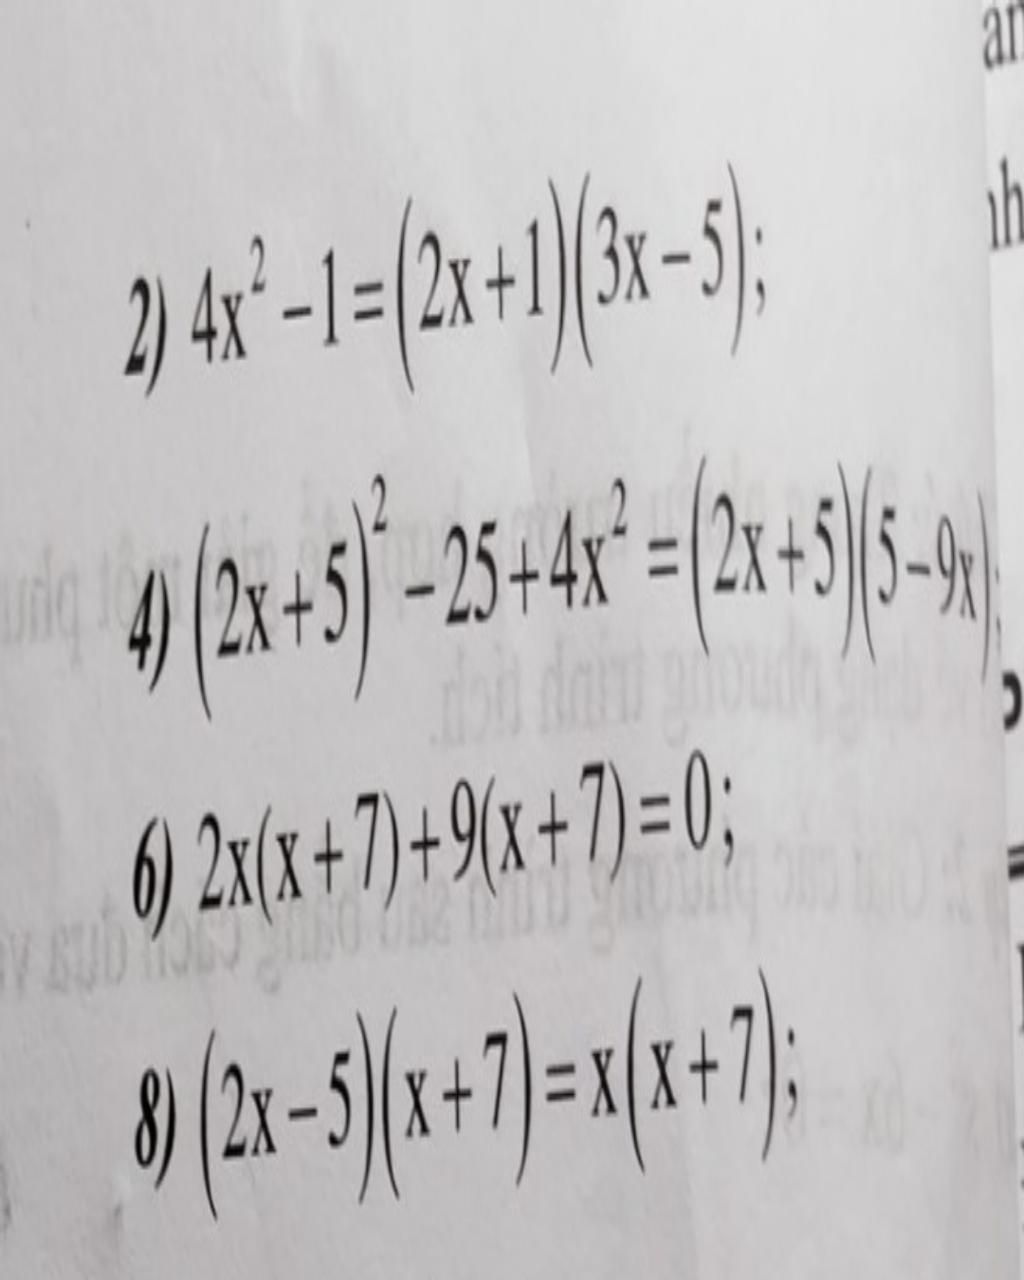 2) 4x² – 1 = (2x + 1)(3x – 5);
4) (2x + 5)² – 25 + 4x² = (2x + 5)(5 – 9x);
6) 2x(x + 7) + 9(x + 7) = 0;
8) (2x – 5)(x + 7) = x(x + 7);